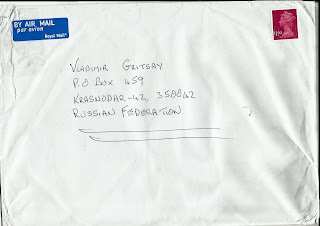 BY AIR MAIL
par avion
Royal Mail
VLADIMIR GRITSAY
P.O BOX 459
KRASNODAR-42, 350042
RUSSIAN FEDERATION